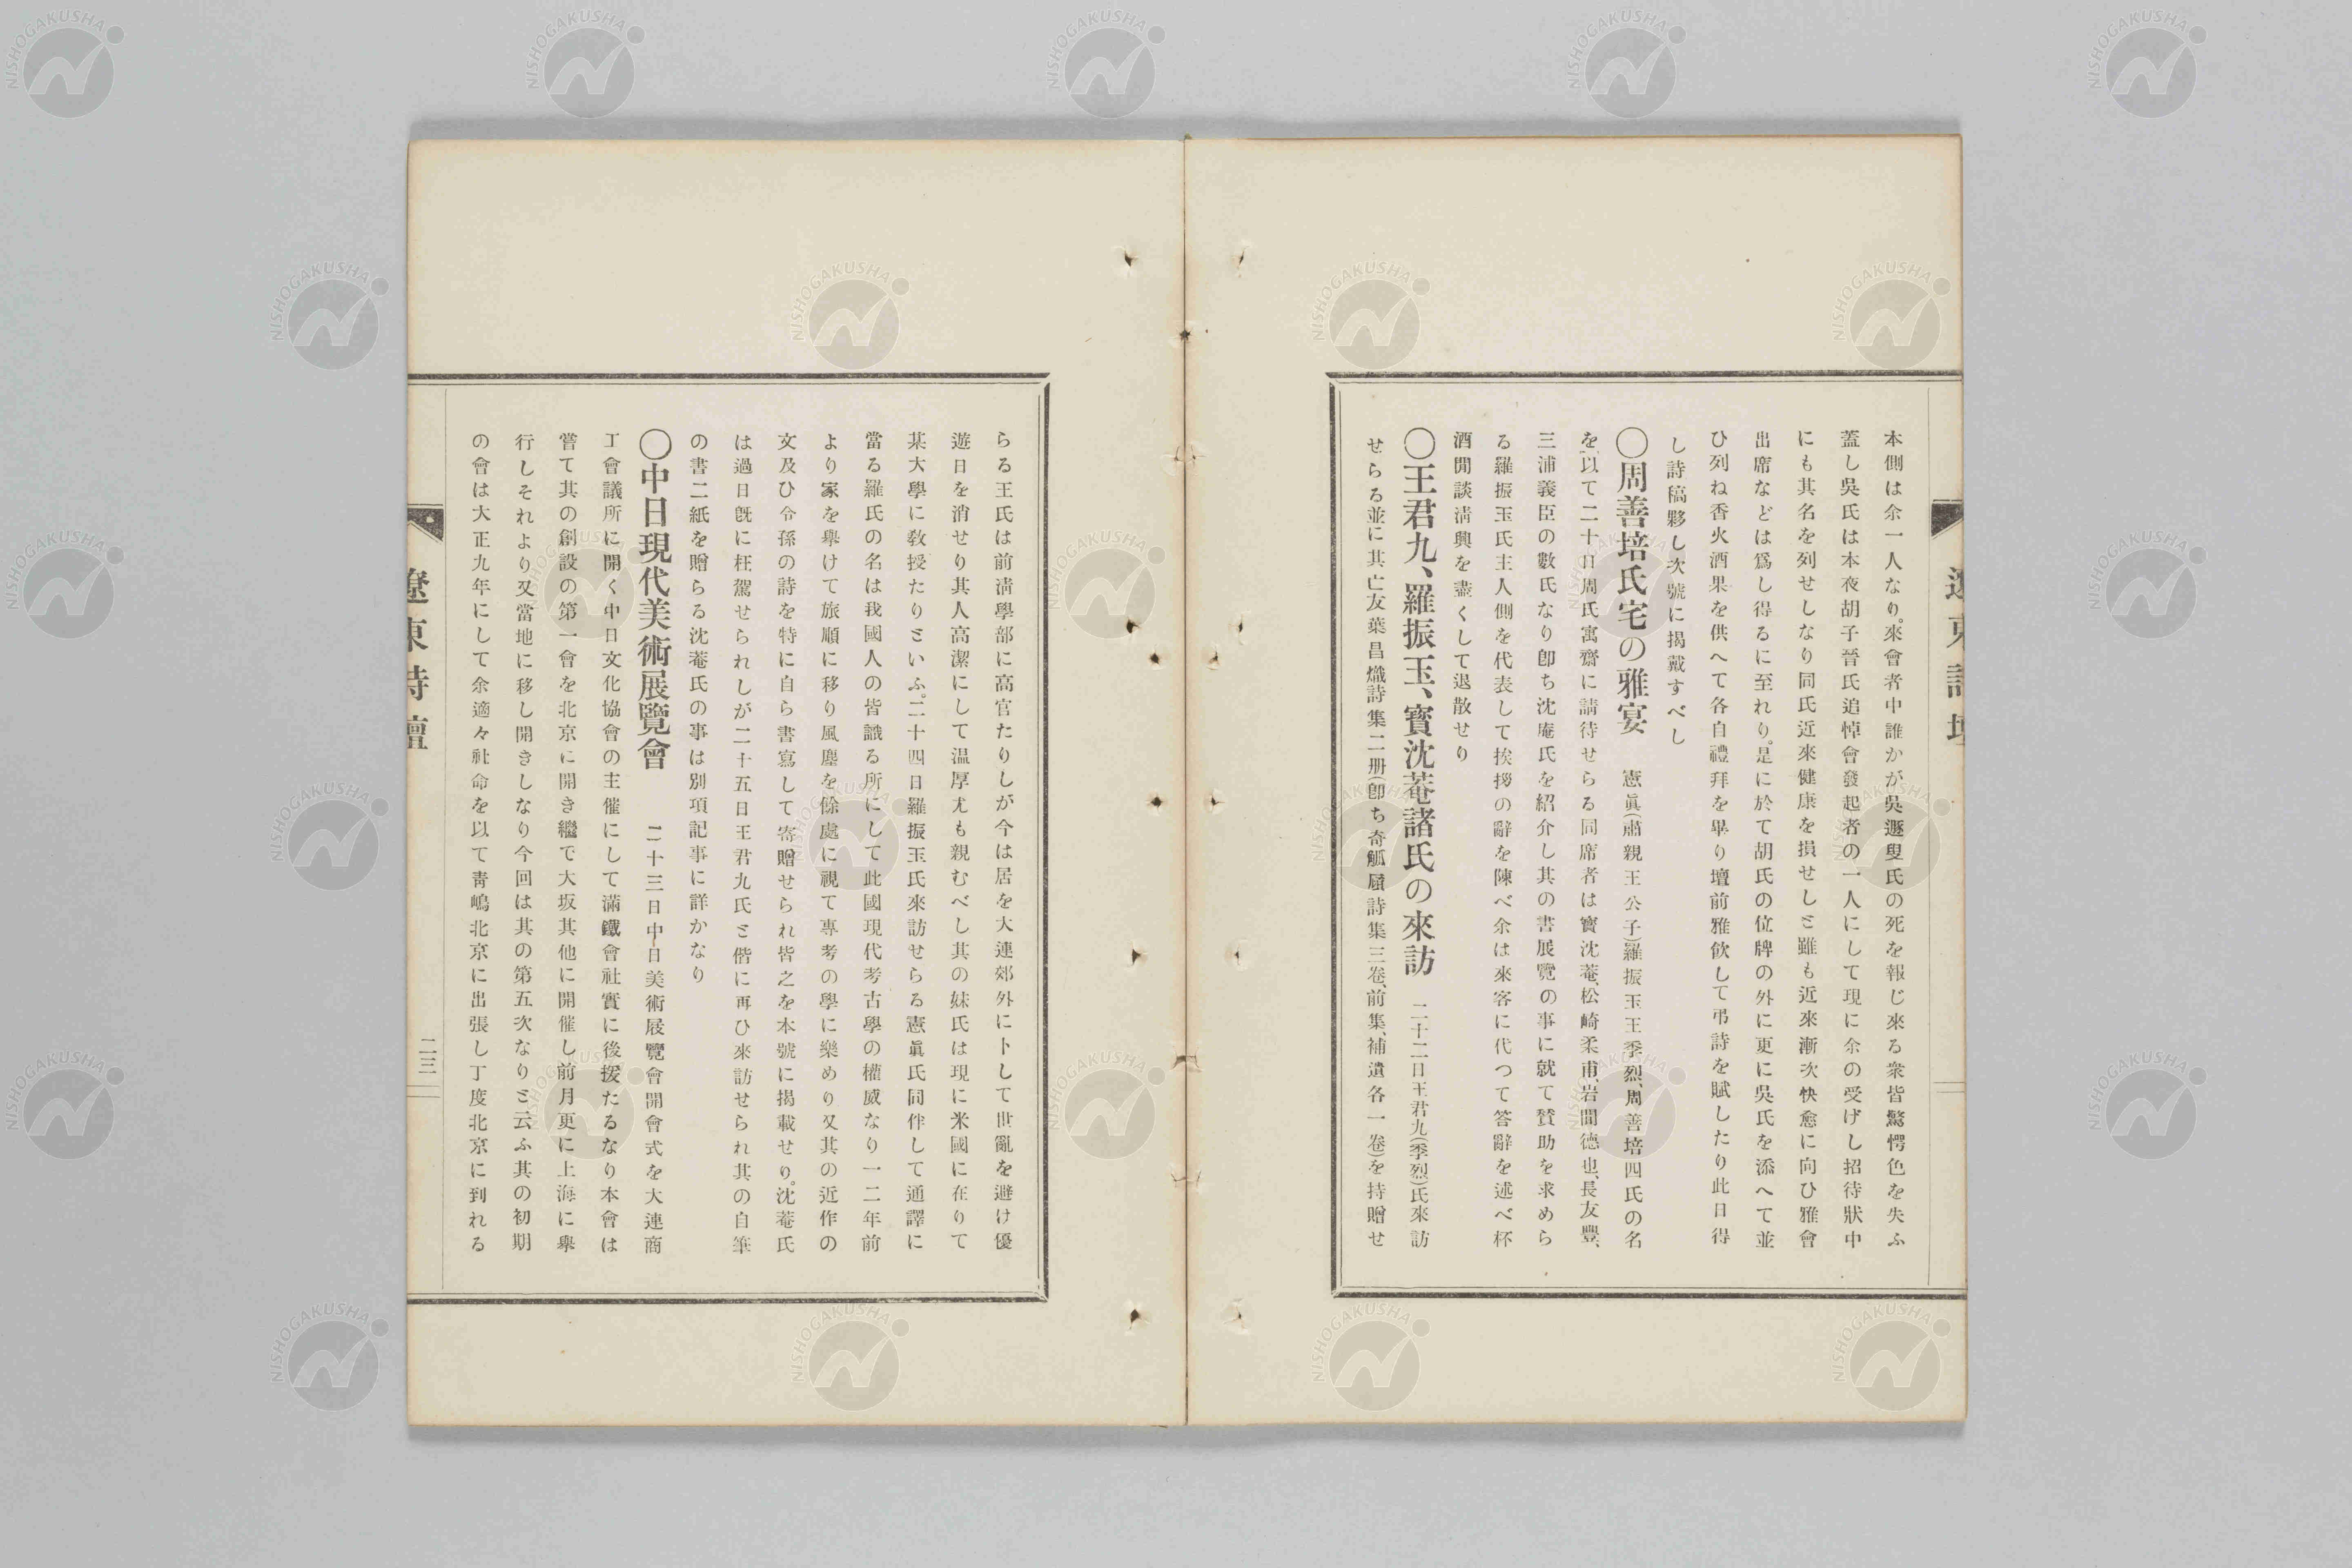 本側は余一人なり。來會者中誰かが吳遯叟氏の死を報じ來る衆皆驚愕色を失ふ
蓋し吳氏は本夜胡子晉氏追悼會發起者の一人にして現に余の受けし招待狀中
にも其名を列せしなり同氏近來健康を損せしと雖も近來漸次快愈に向ひ雅會
出席などは爲し得るに至れり。是に於て胡氏の位牌の外に更に吳氏を添へて並
ひ列ね香火酒果を供へて各自禮拜を畢り壇前雅飲して弔詩を賦したり此日得
し詩稿夥し次號に揭戴すべし
〇周善培氏宅の雅宴　憲眞(肅親王公子)羅振玉王季烈、周善培四氏の名
を以て二十日周氏寓齋に請待せらる同席者は寶沈菴、松崎柔甫、岩間德也、長友豐、
三浦義臣の數氏なり卽ち沈庵氏を紹介し其の書展覽の事に就て賛助を求めら
る羅振玉氏主人側を代表して挨拶の辭を陳べ余は來客に代つて答辭を述べ杯
酒間談淸興を盡くして退散せり
〇王君九、羅振玉、寶沈菴諸氏の來訪　二十二日王君九(季烈)氏來訪
せらる並に其亡友葉昌熾詩集二册(卽ち奇觚廎詩集三卷、前集、補遺各一卷)を持贈せ
らる王氏は前淸學部に高官たりしが今は居を大連郊外に卜して世亂を避け優
遊日を消せり其人高潔にして温厚尤も親むべし其の妹氏は現に米國に在りて
某大學に敎授たりといふ。二十四日羅振玉氏來訪せらる憲眞氏同伴して通譯に
當る羅氏の名は我國人の皆識る所にして此國現代考古學の權威なり一二年前
より家を擧けて旅順に移り風塵を餘處に視て專考の學に樂めり又其の近作の
文及ひ令孫の詩を特に自ら書寫して寄贈せられ皆之を本號に揭載せり。沈菴氏
は過日旣に枉駕せられしが二十五日王君九氏と偕に再ひ來訪せられ其の自筆
の書二紙を贈らる沈菴氏の事は別項記事に詳かなり
〇中日現代美術展覽會　二十三日中日美術展覽會開會式を大連商
工會議所に開く中日文化協會の主催にして滿鐵會社實に後援たるなり本會は
嘗て其の創設の第一會を北京に開き繼で大坂其他に開催し前月更に上海に擧
行しそれより又當地に移し開きしなり今回は其の第五次なりと云ふ其の初期
の會は大正九年にして余適々社命を以て靑嶋北京に出張し丁度北京に到れる
遼東詩壇
二三